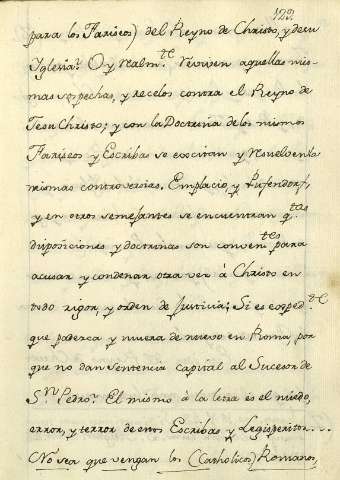 123.
para los Fariseos) del Reyno de Christo, y de su
Iglesia? Oy realm.te reviven aquellas mis-
mas sospechas, y recelos contra el Reyno de
Jesu Christo; y con la Doctrina de los mismos
Fariseos y Escribas se excitan y resuelven las
mismas controversias. En
y Pufendorf,
y en otros semejantes se encuentran q.tas
disposiciones y doctrinas son conven.tes para
acusar y condenar otra vez à Christo en
todo rigor y orden de Justicia; Si es
que padezca y muera de nuevo en Roma, por
que no dan sentencia capital al Sucesor de
S.n Pedro? El mismo à la letra es el miedo,
error, y terror de esos Escribas y Legisperitos....
No sea que vengan los (Catholicos) Romanos,